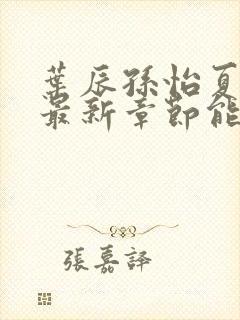 葉辰孫怡夏
最新章節能
張嘉譯